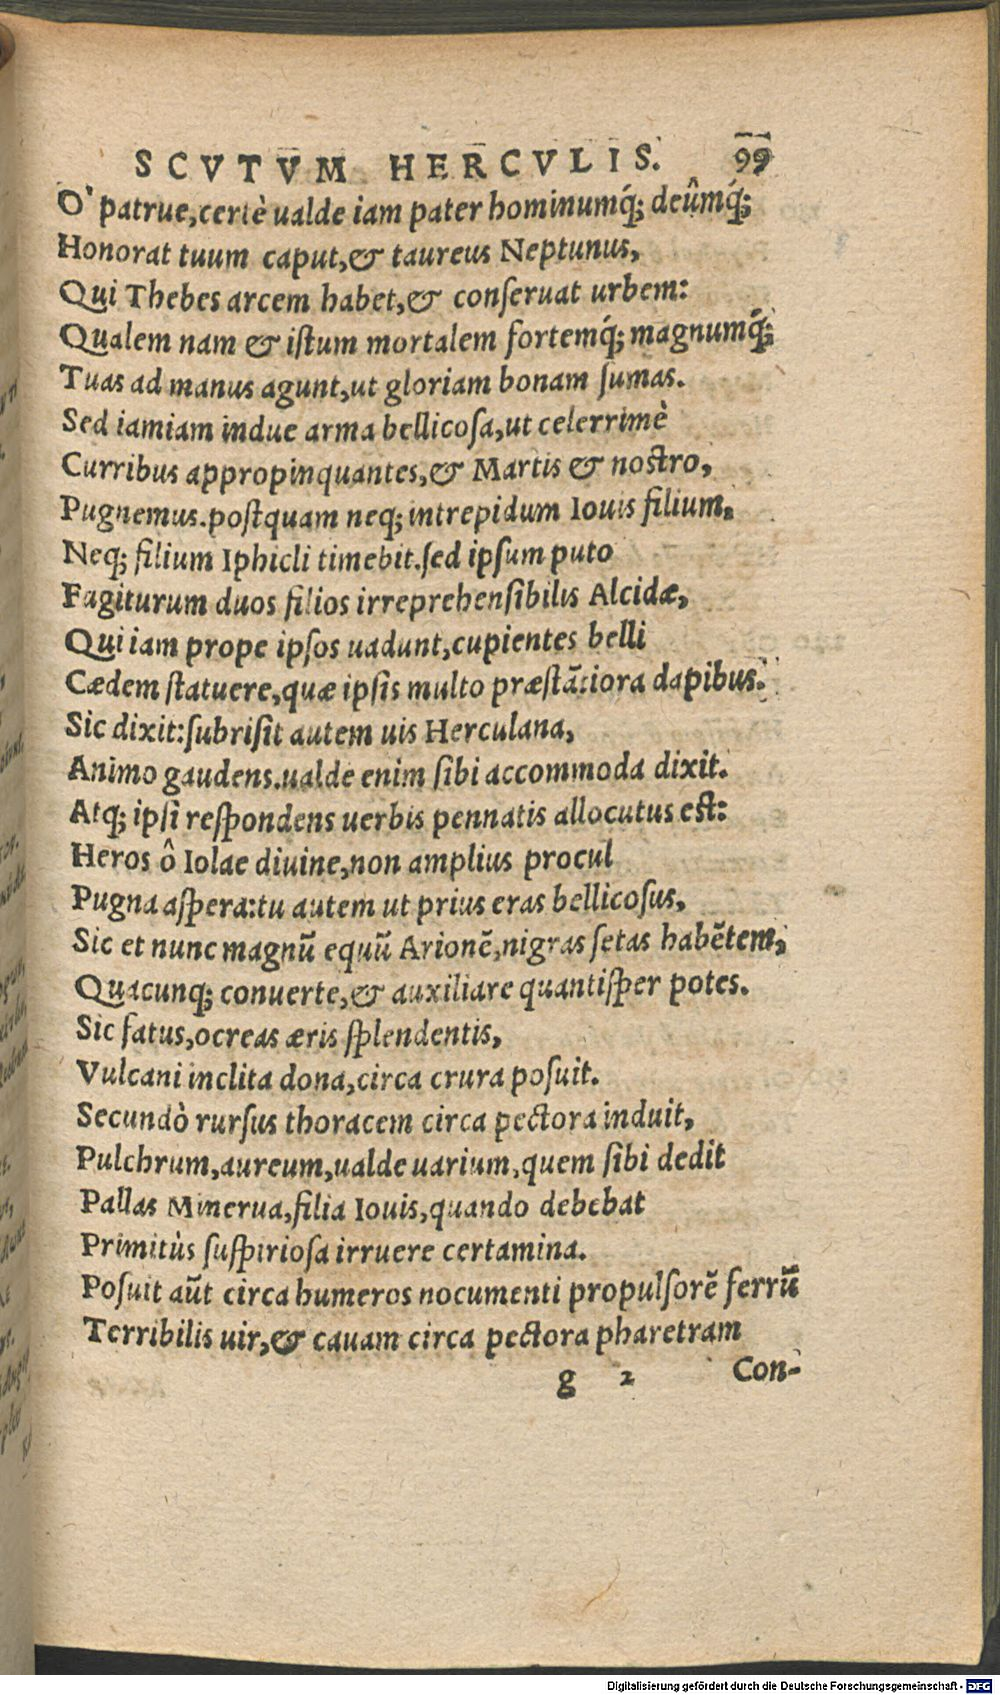 SCVTVM HERCVLIS. 99
O' patrue, certè ualde iam pater hominumq́; deûmq́;
Honorat tuum caput, & taureus Neptunus,
Qui Thebes arcem habet, & conſeruat urbem:
Qualem nam & iſtum mortalem fortemq́; magnumq́;
Tuas ad manus agunt, ut gloriam bonam ſumas.
Sed iamiam indue arma bellicoſa, ut celerrimè
Curribus appropinquantes, & Martis & noſtro,
Pugnemus. poſtquam neq; intrepidum Iouis filium,
Neq; filium Iphicli timebit. ſed ipſum puto
Fagiturum duos filios irreprehenſibilis Alcidæ,
Qui iam prope ipſos uadunt, cupientes belli
Cædem ſtatuere, quæ ipſis multo præſtãtiora dapibus.
Sic dixit: ſubriſit autem uis Herculana,
Animo gaudens. ualde enim ſibi accommoda dixit.
Atq; ipſi reſpondens uerbis pennatis allocutus eſt:
Heros ô Iolae diuine, non amplius procul
Pugna aſpera: tu autem ut prius eras bellicoſus,
Sic et nunc magnũ equũ Arionẽ, nigras ſetas habẽtem,
Quacunq; conuerte, & auxiliare quantiſper potes.
Sic fatus, ocreas æris ſplendentis,
Vulcani inclita dona, circa crura poſuit.
Secundò rurſus thoracem circa pectora induit,
Pulchrum, aureum, ualde uarium, quem ſibi dedit
Pallas Minerua, filia Iouis, quando debebat
Primitùs ſuſpirioſa irruere certamina.
Poſuit aũt circa humeros nocumenti propulſorẽ ferrũ
Terribilis uir, & cauam circa pectora pharetram
g 2 Con-
Digitalisierung gefördert durch die Deutsche Forschungsgemeinschaft - DFG